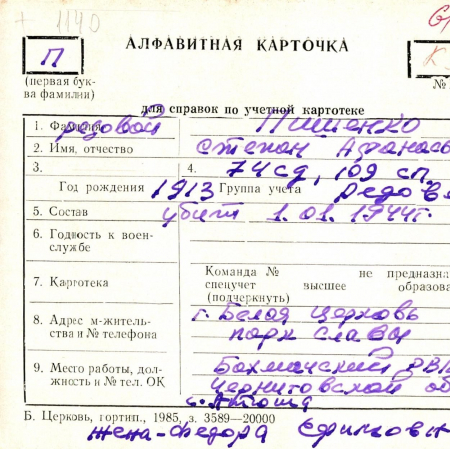 + 1140
АЛФАВИТНАЯ КАРТОЧКА
П
К
(первая бук-
ва фамилии)
№
для справок по учетной картотеке
1. Фамилия рядовой Пищенко
2. Имя, отчество Степан Афанась
3. Год рождения 1913
4. Группа учета 74 сд, 109 сп. Рядов
5. Состав убит 1.01.1944г.
6. Годность к воен-
службе
7. Картотека
Команда № не предназна
спецучет высшее образова
(подчеркнуть)
8. Адрес м-житель-
ства и № телефона
г. Белая Церковь
парк Славы
9. Место работы, дол-
жность и № тел. ОК
Бахмачский РВ
Черниговской об
с. Атюша
Б. Церковь, гортип., 1985, з. 3589—20000
жена-Федора Ефимовн